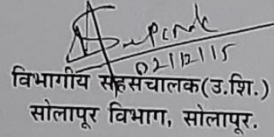 02/12/15
विभागीय सहसंचालक(उ.शि.)
सोलापूर विभाग, सोलापूर.